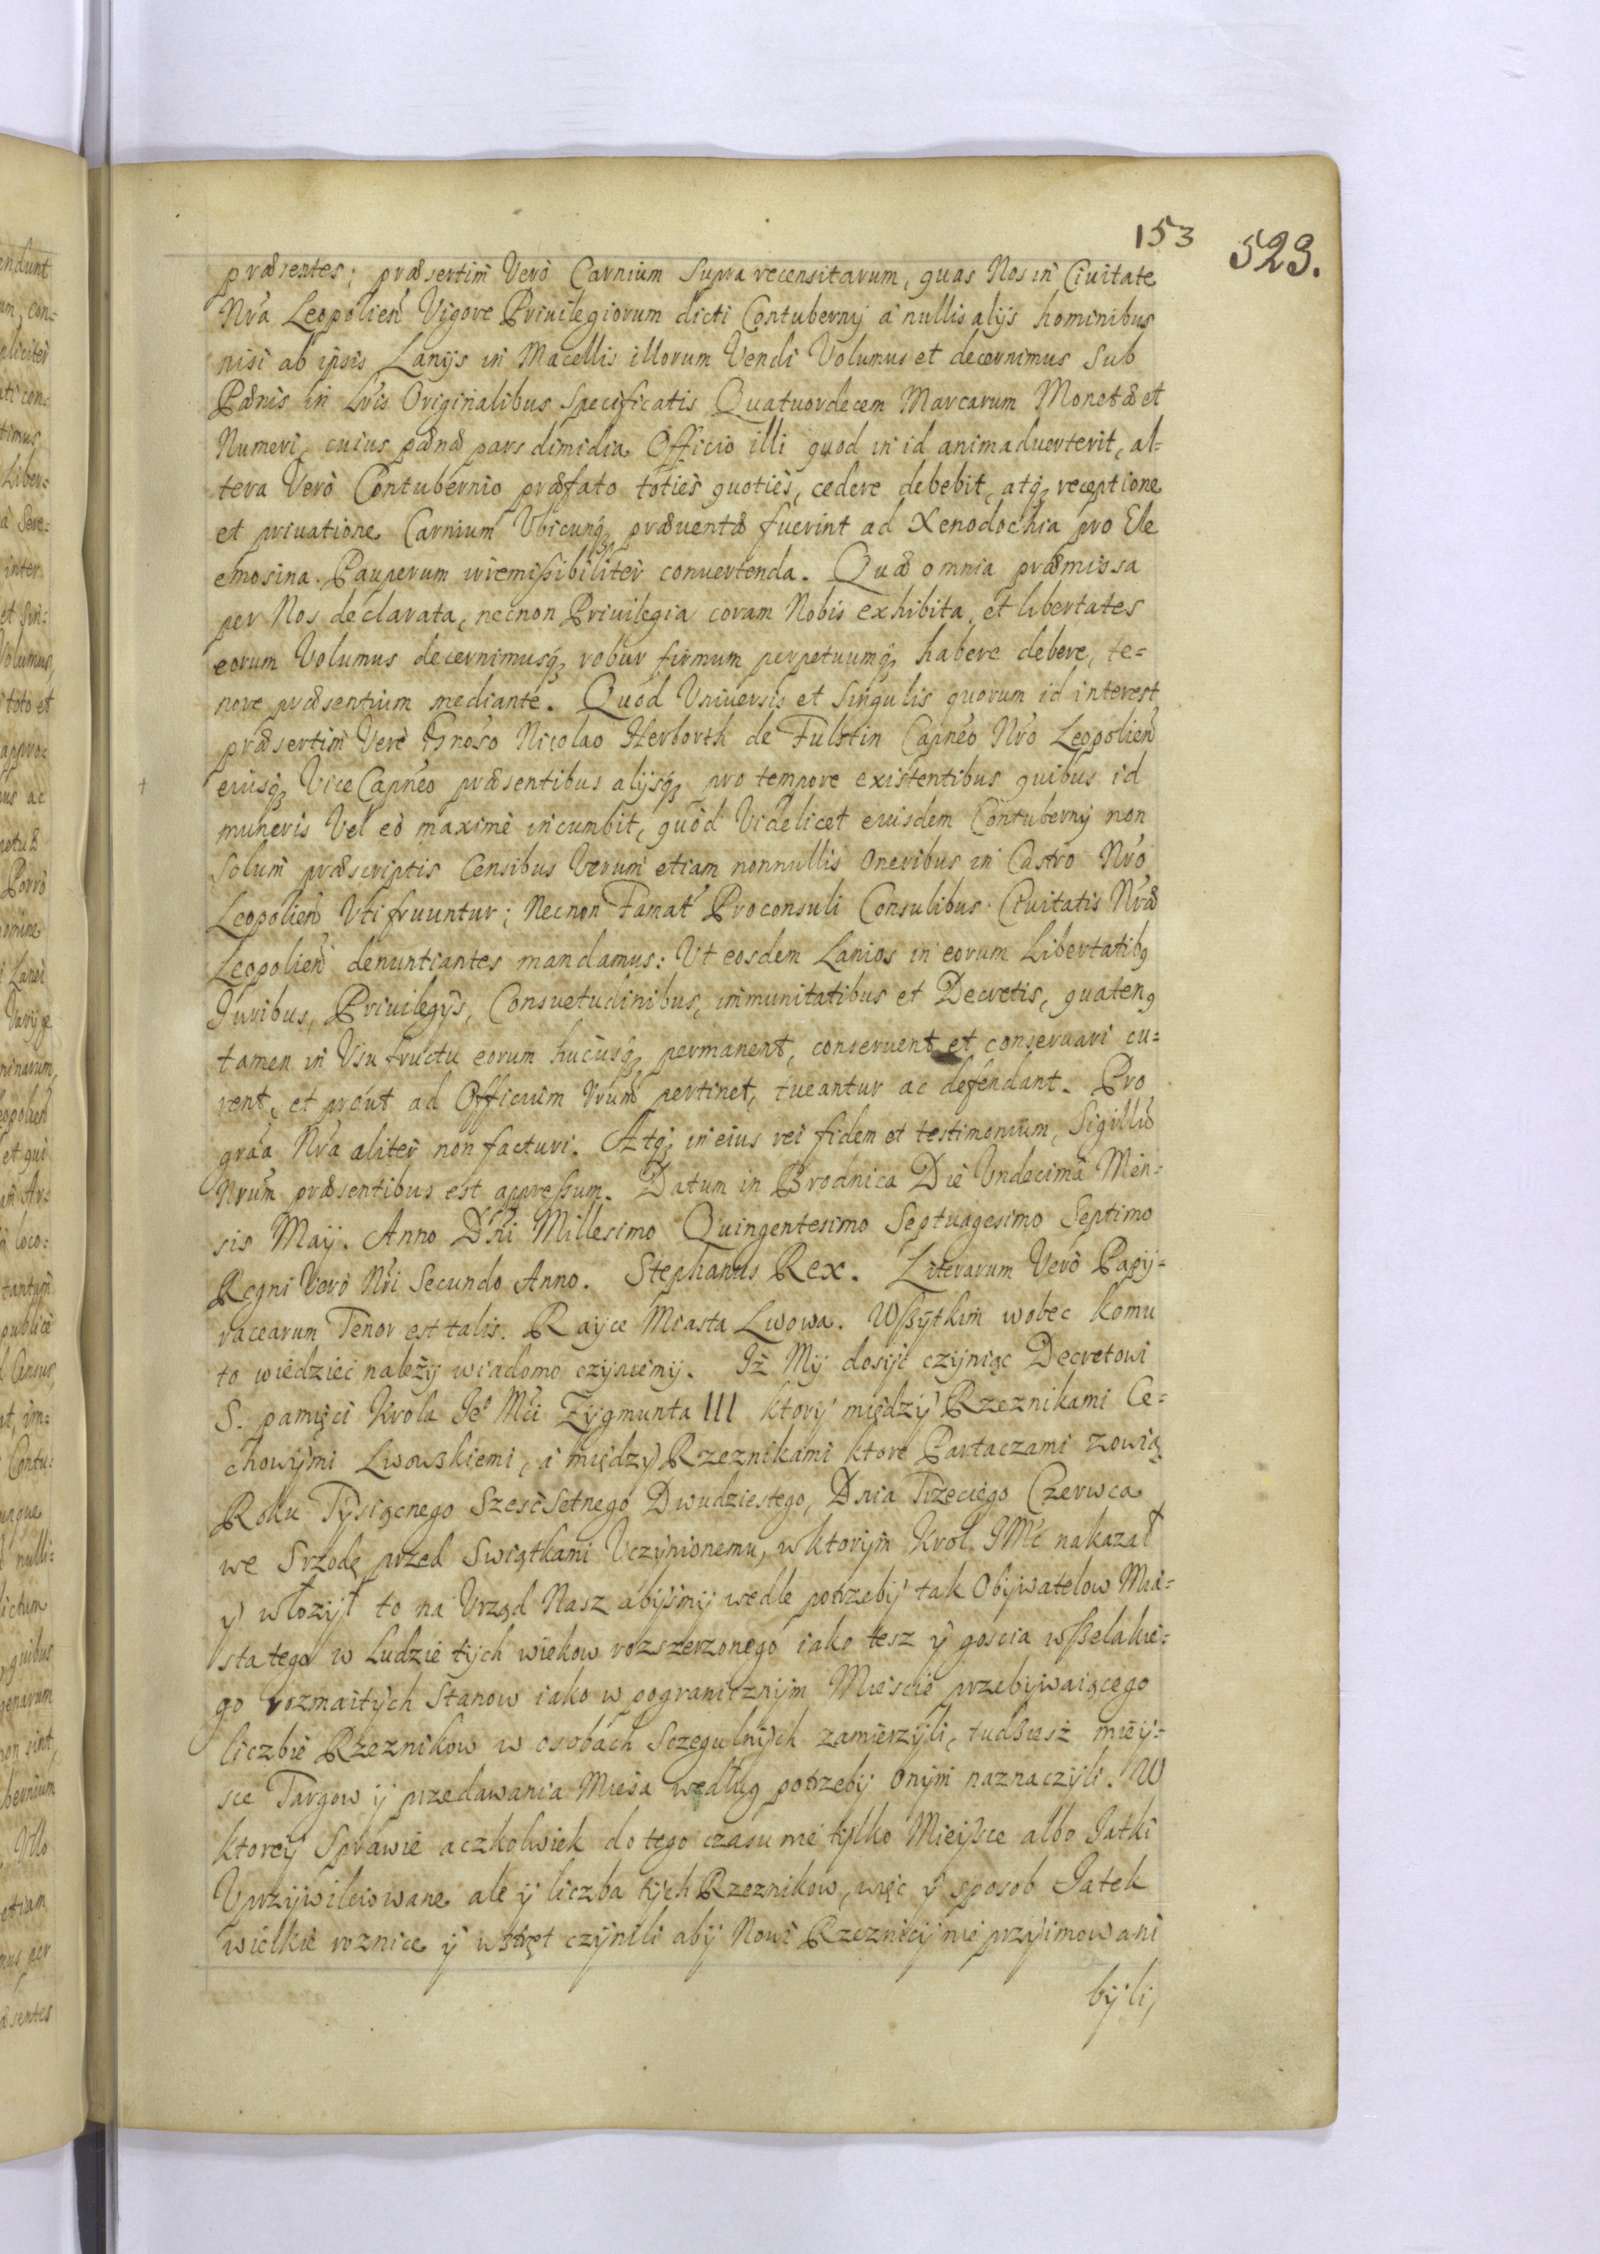 153 523.
præsentes; præsertim Verò Carnium supra recensitarum, quas Nos in Ciuitate
Nr̃a Leopolień Vigore Priuilegiorum dicti Contubernij à nullis alijs hominibus
nisi ab ipsis Lanijs in Macellis illorum Vendi Volumus et decernimus sub
Pænis in Lr̃is Originalibus specificatis Quatuordecem Marcarum Monetæ et
Numeri, cuius pænæ pars dimidia Officio illi quod in id animaduerterit, al-
tera Verò Contubernio præfato toties quoties, cedere debebit, atq̃ receptione
et priuatione Carnium Vbicunq̃ præuentæ fuerint ad Xenodochia pro Ele
emosina Pauperum irremißibiliter conuertenda. Quæ omnia præmissa
per Nos declarata, necnon Priuilegia coram Nobis exhibita et libertates
eorum Volumus decernimusq̃ robur firmum perpetuumq̃ habere debere, te=
nore præsentium mediante. Quod Vniuersis et Singulis quorum id interest
præsertim Verò Gnoso Nicolao Herborth de Fulstin Capńeo Nr̃o Leopolień
eiusq̃ Vice Capńeo præsentibus alijsq̃ pro tempore existentibus quibus id
muneris Vel eò maximè incumbit, quòd Videlicet eiusdem Contubernij non
solum præscriptis Censibus Verum etiam nonnullis Oneribus in Castro Nr̃o
Leopolień Vti fruuntur; Necnon Famat̃ Proconsuli Consulibus Ciuitatis Nr̃æ
Leopolień denuntiantes mandamus: Vt eosdem Lanios in eorum Libertatibq
Iuribus, Priuilegijs, Consuetudinibus, immunitatibus et Decretis, quatenq
tamen in Vsu fructu eorum hucusq̃ permanent, conseruent et conseruari cu=
rent, et prout ad Officium Vrũm pertinet, tueantur ac defendant. Pro
gr̃aa Nr̃a aliter non facturi. Atq̃ in eius rei fidem et testimonium, Sigillũ
Nrũm præsentibus est appreßum. Datum in Brodnica Die Vndecima Men-
sis Maij. Anno Dńi Millesimo Quingentesimo Septuagesimo Septimo
Regni Verò Nr̃i Secundo Anno. Stephanus Rex. Literarum Verò Papy-
racearum Tenor est talis. Rayce Miasta Lwowa. Wßytkim wobec komu
to wiedziec należy wiadomo czynimy. Iż My dosyć czyniąc Decretowi
S. pamięci Krola Ie° Mći Zygmunta III ktory między Rzeznikami Ce=
chowymi Lwowskiemi, a między Rzeznikami ktore Partaczami zowią
Roku Tysiącnego Szesć Setnego Dwudziestego, Dnia Trzeciego Czerwca
we Srzodę przed Swiątkami Vczynionemu, w ktorym Krol IMć nakazał
y włożył to na Vrząd Nasz abyśmy wedle potrzeby tak Obywatelow Mia-
sta tego w Ludzie tych wiekow rozszerzonego iako tesz y goscia wßelakie-
go rozmaitych Stanow iako w pogranicznym Miescie przebywaiącego
liczbie Rzeznikow w osobach Sczegulnych zamierzyli, tudßiesz miey-
sce Targow y przedawania Mięsa według potrzeby Onym naznaczyli. W
ktorey Sprawie aczkolwiek do tego czasu nie tylko Mieysce albo Iatki
Vprzywileiowane ale y liczba tych Rzeznikow, więc y sposob Iatek
wielkie roznice y wstręt czynili aby Nowi Rzeznicy nie przyimowani
byli,